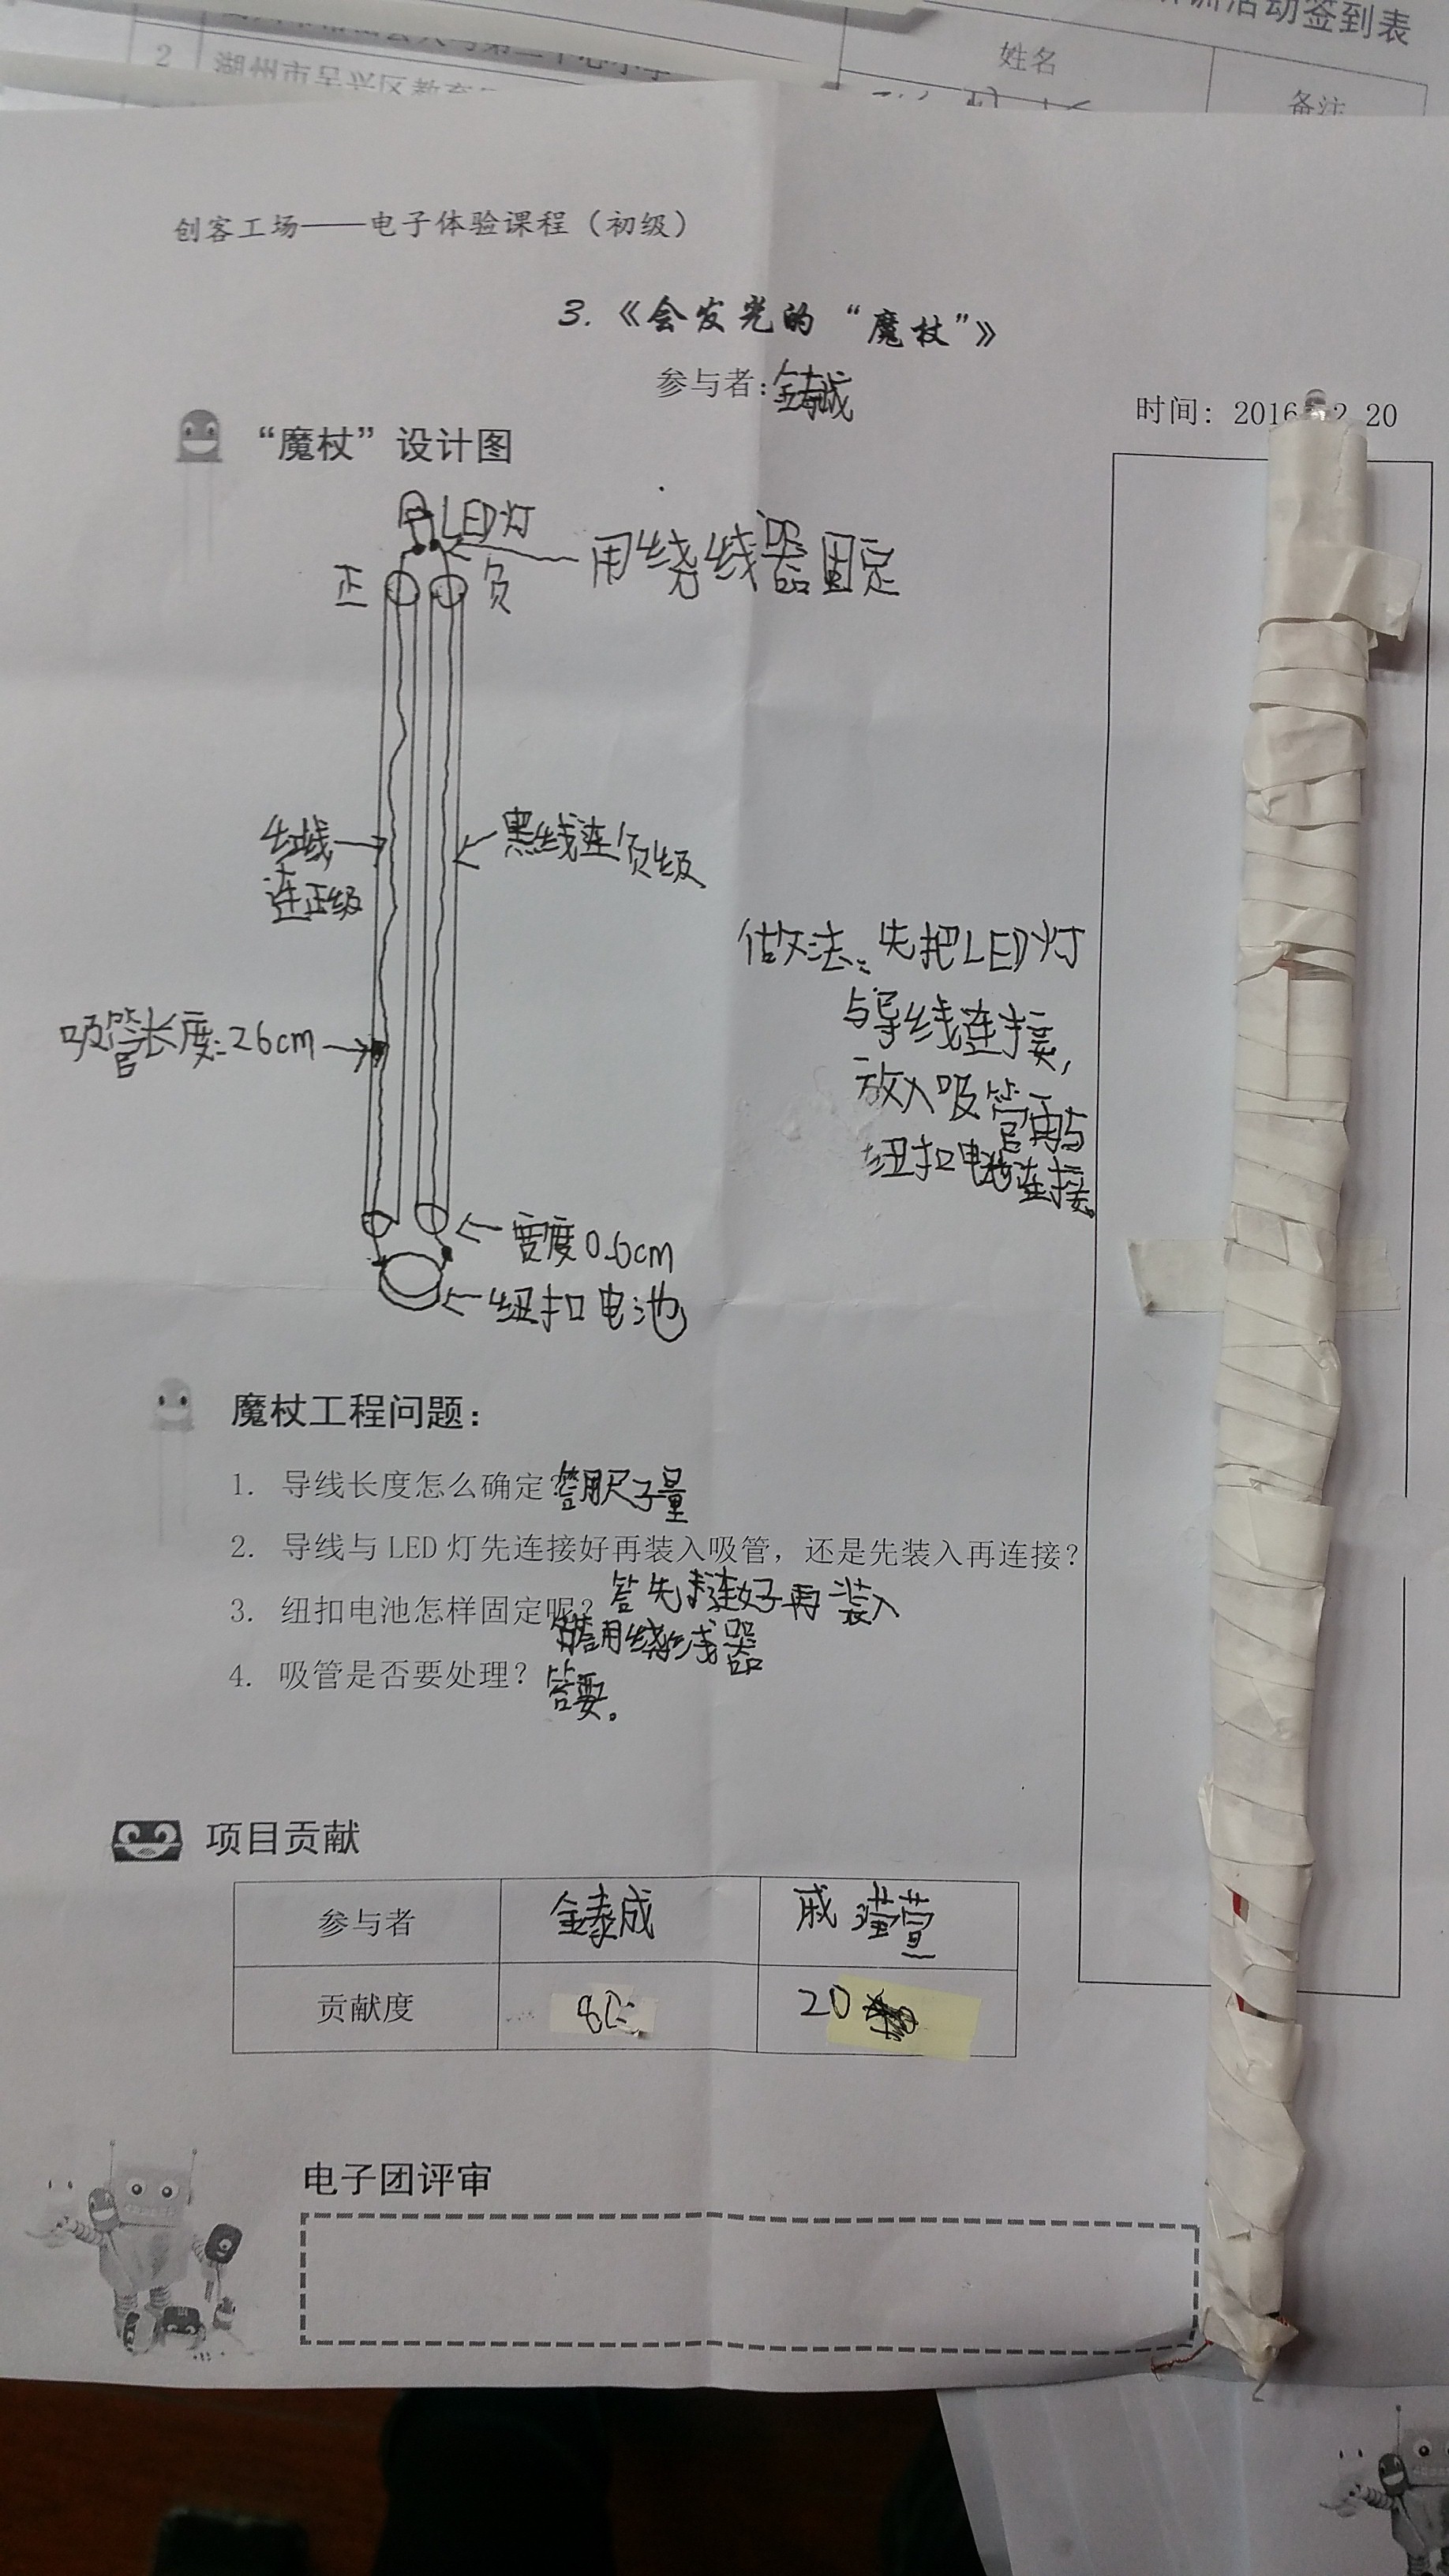 活动签到表
姓名
备注
2
湖州市吴兴区教育
创客工场——电子体验课程（初级）
3.《会发光的“魔杖”》
参与者：
时间: 2016 2 20
“魔杖”设计图
LED灯
正
负
用绕线器固定
红线
连正级
黑线连负级
吸管长度:26cm
做法:先把LED灯
与导线连接,
放入吸管再与
纽扣电池连接。
宽度0.6cm
纽扣电池
魔杖工程问题：
1. 导线长度怎么确定?答用尺子量
2. 导线与 LED 灯先连接好再装入吸管，还是先装入再连接?
答先连好再装入
3. 纽扣电池怎样固定呢?
答用绕线器
4. 吸管是否要处理? 答要。
项目贡献
参与者 戚瑾萱
贡献度 80 20
电子团评审